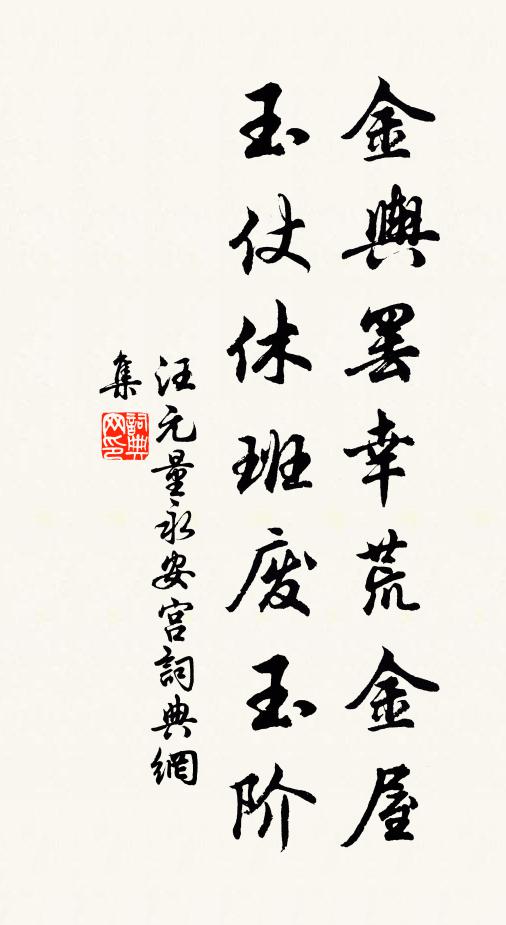 金輿罢幸荒金屋
玉仗休班废玉阶
汪元量永安宫詞典網
集
詞典
网印